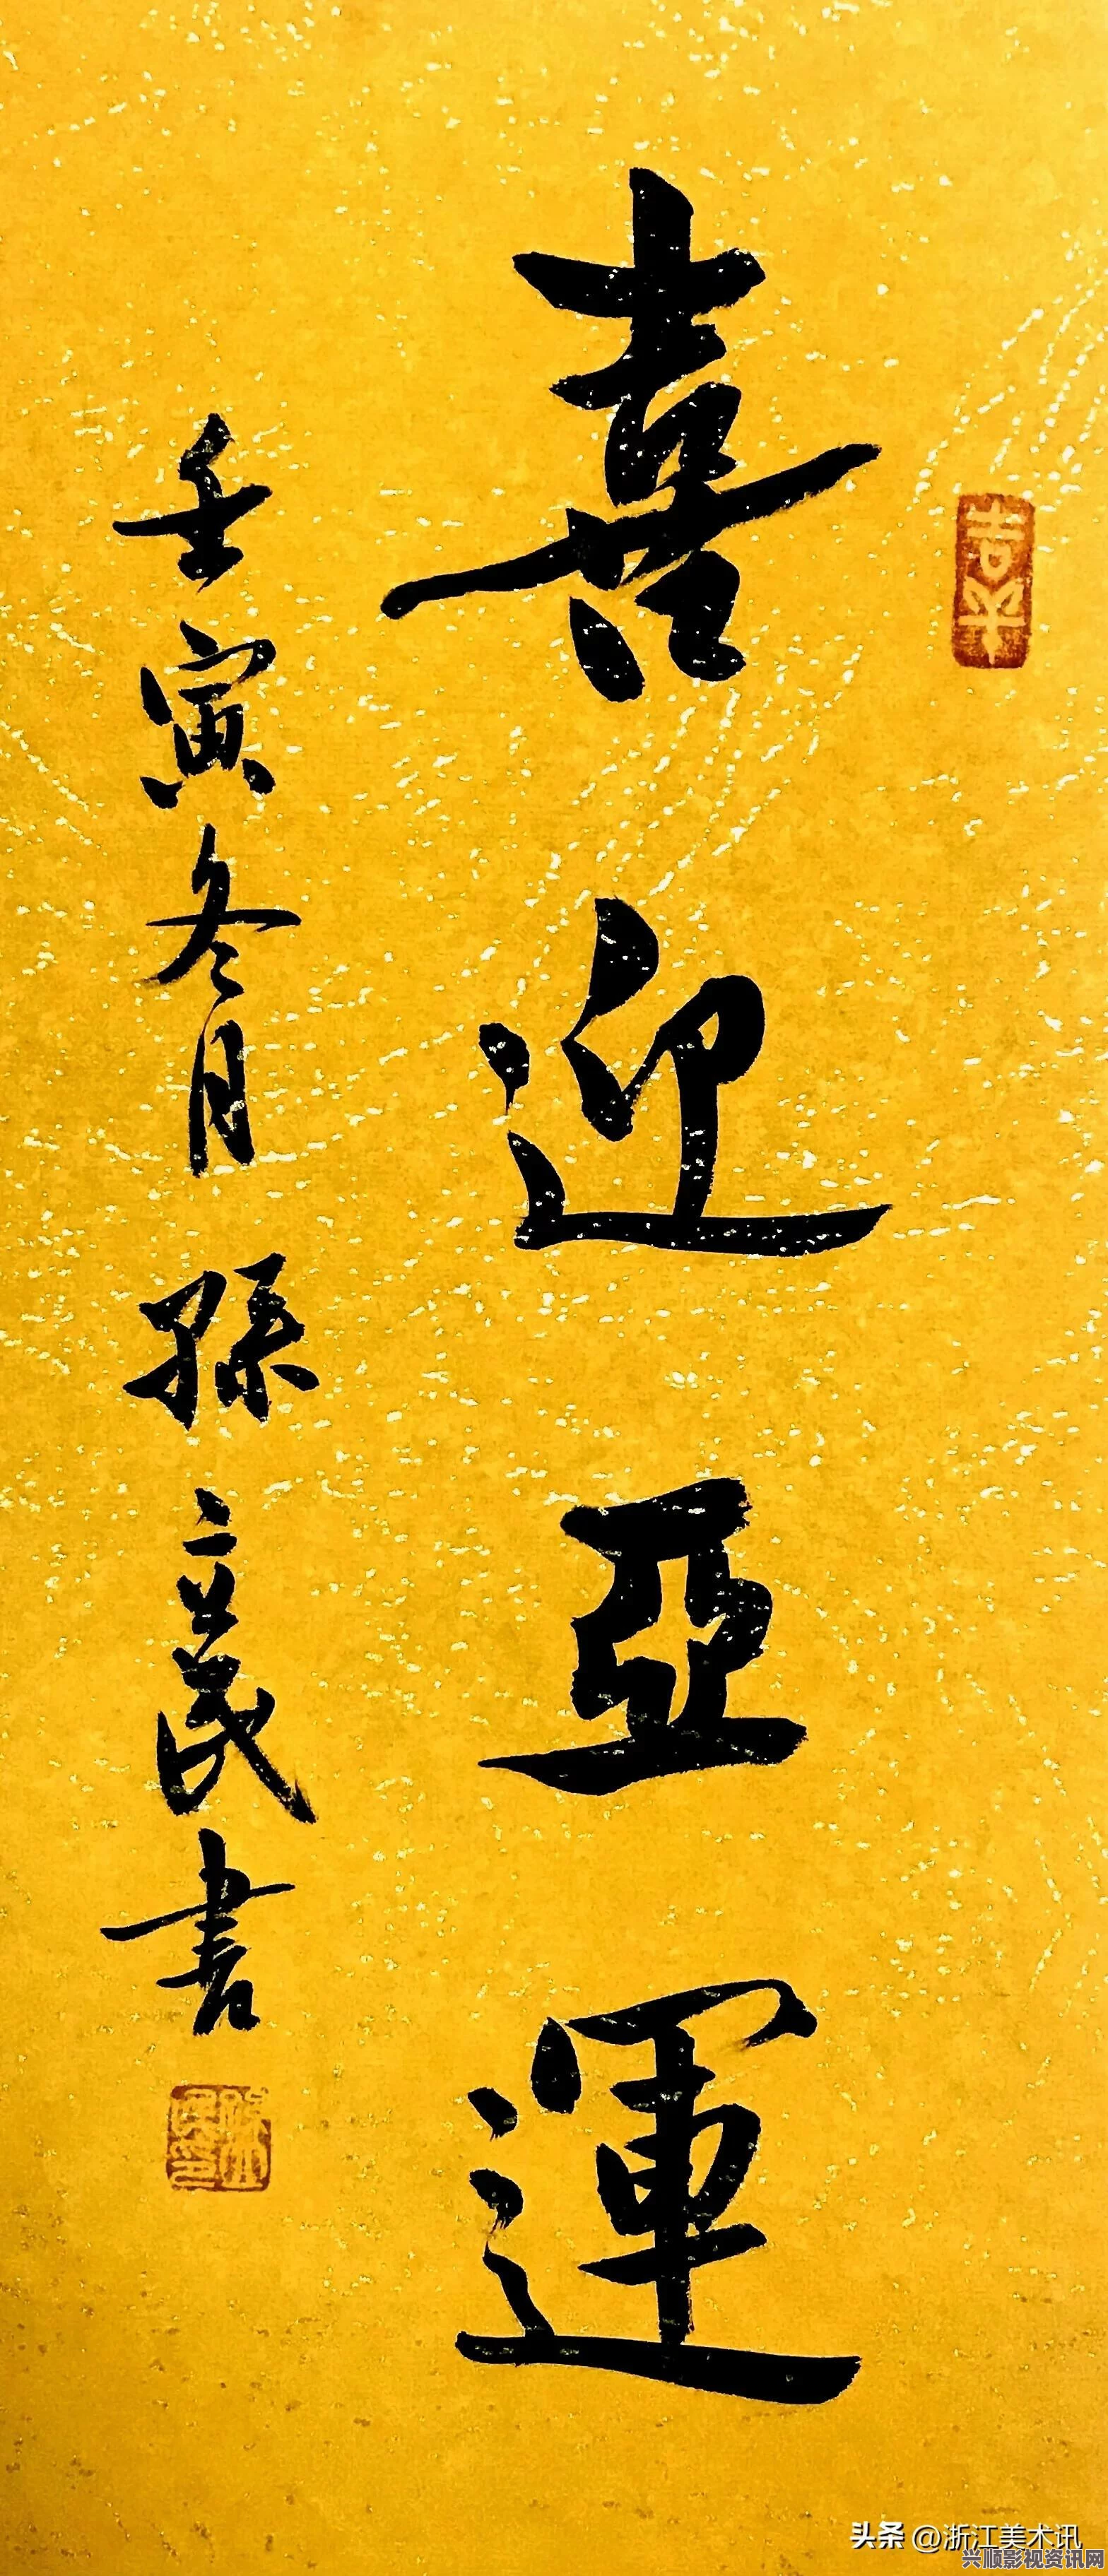 喜迎亞運
壬寅冬月孫立民書
头条 @浙江美术讯
兴顺影视资讯网